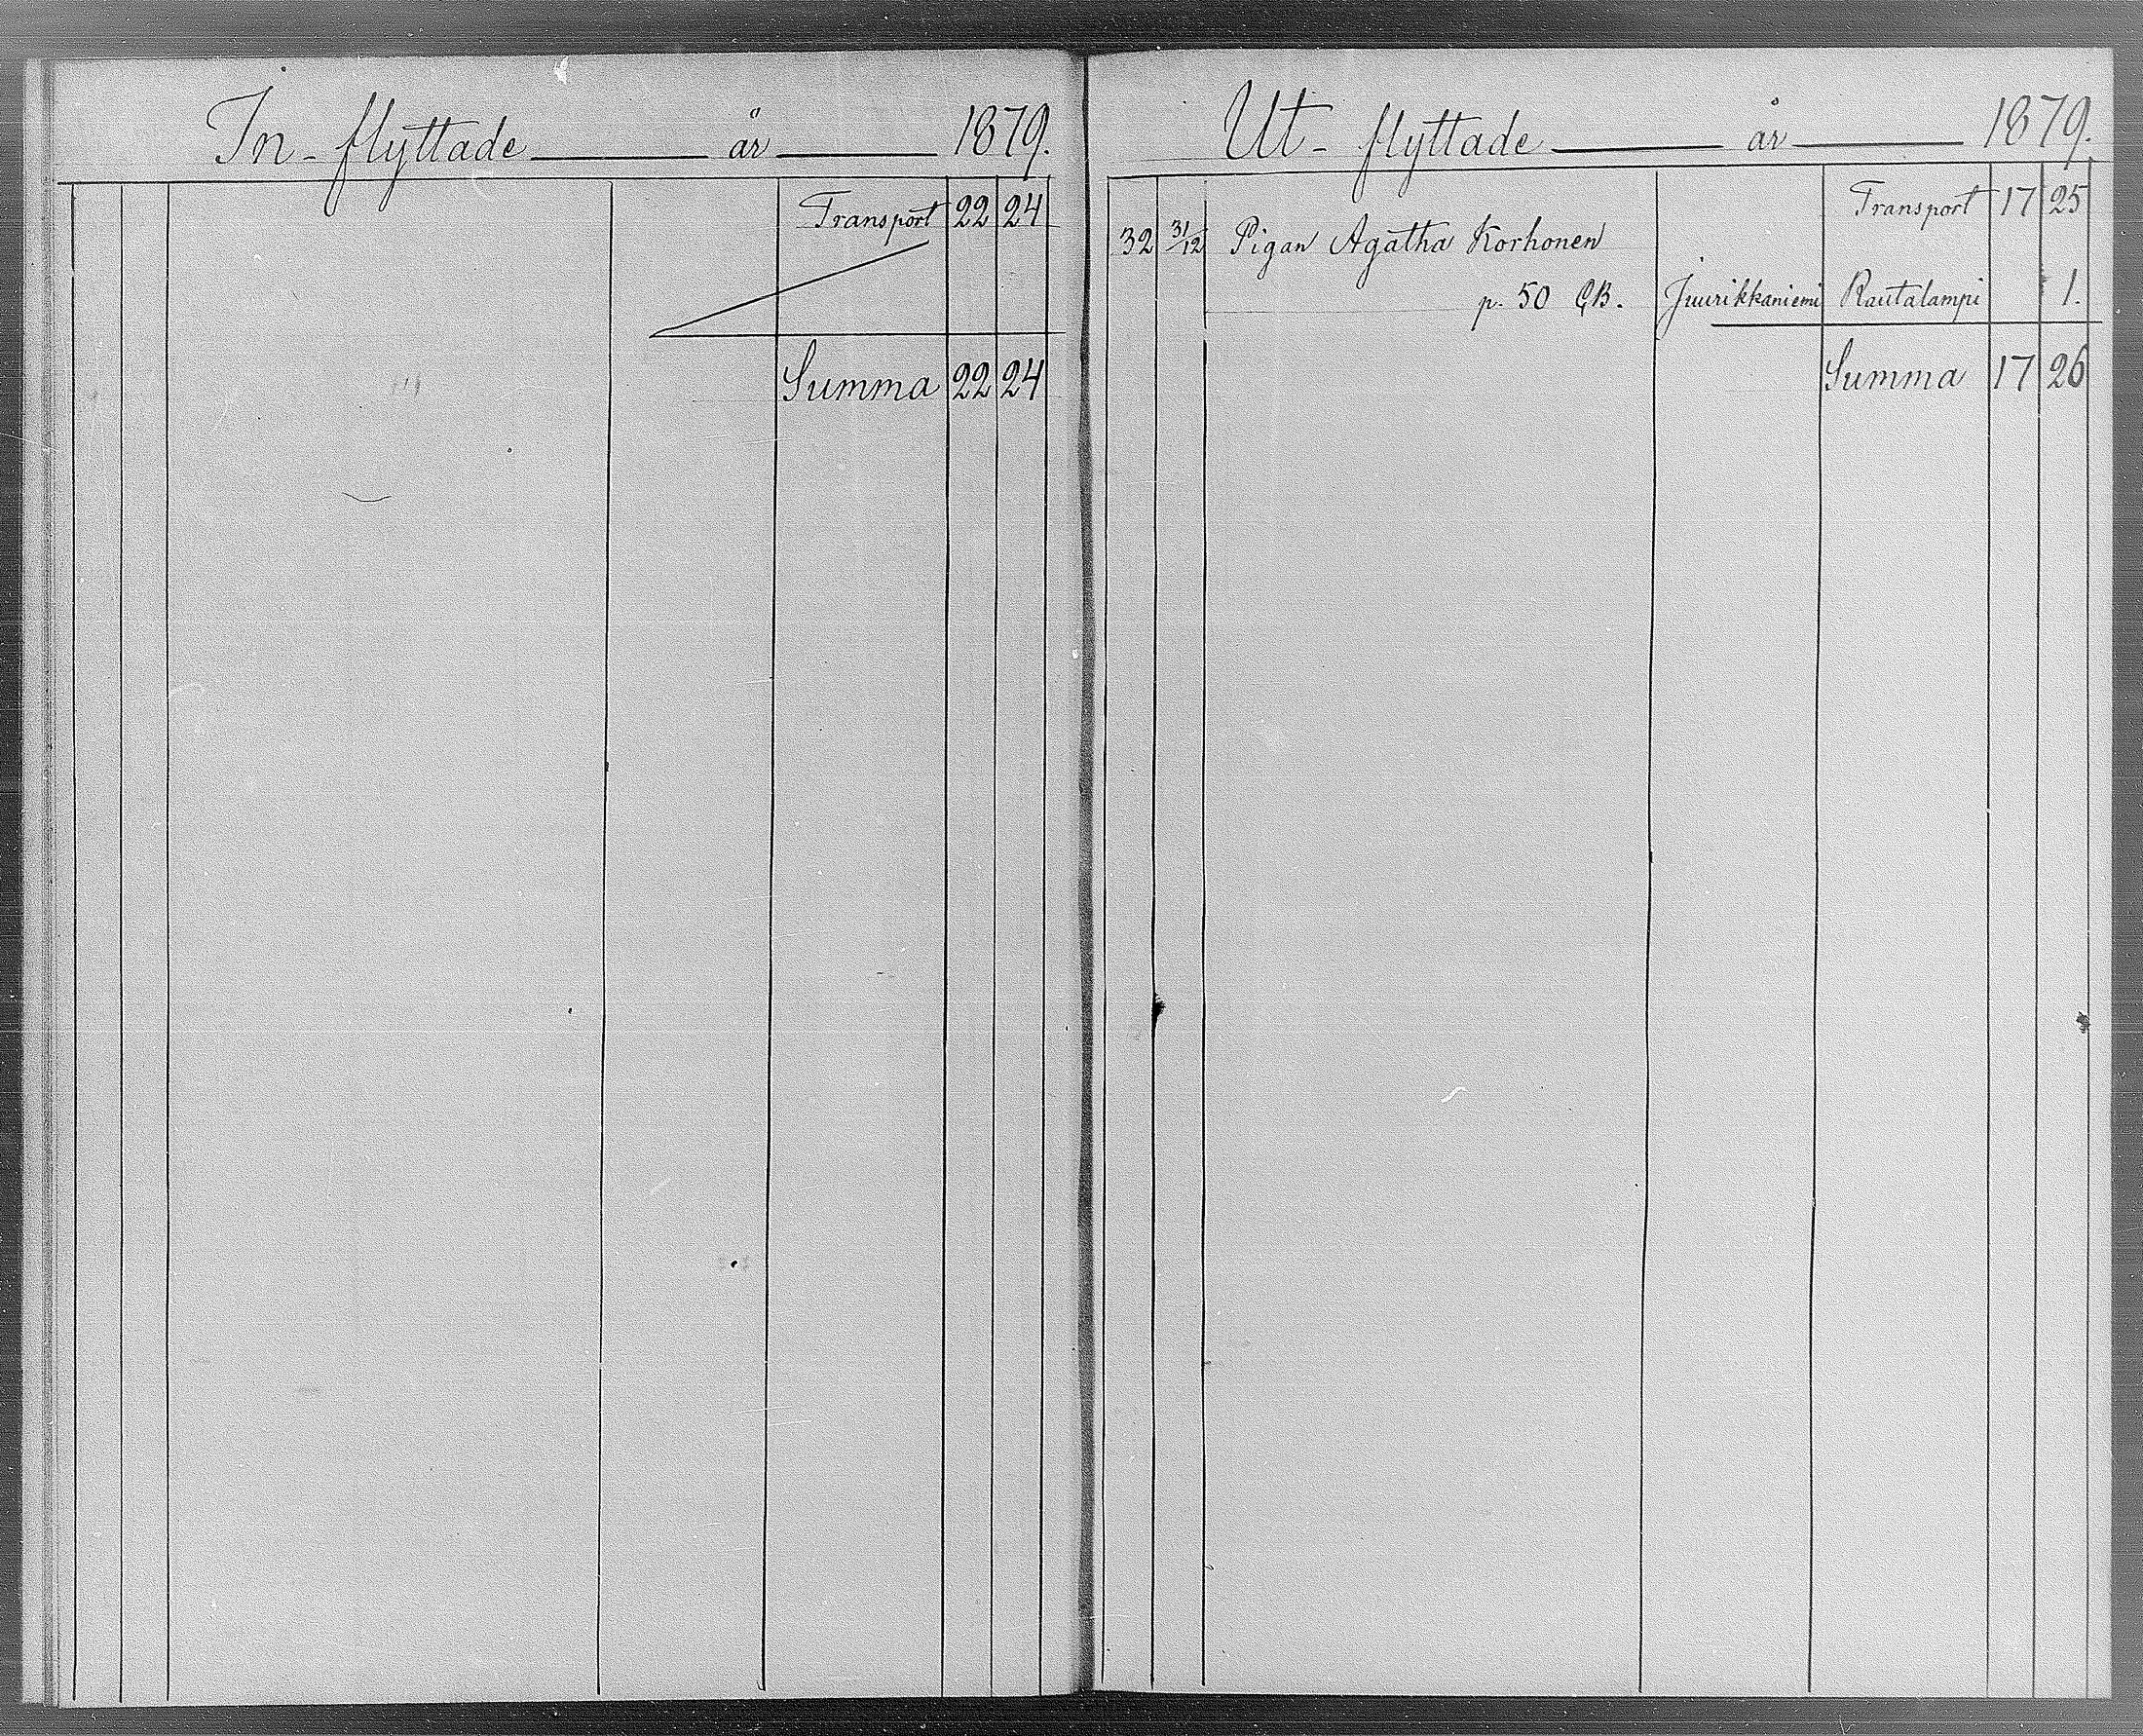 In-flyttade år 1879.
Transport 22 24
Summa 22 24
Ut-flyttade år 1879.
Transport 17 25
32 31/12 Pigan Agatha Korhonen
p. 50 GB. Juurikkaniemi Rautalampi 1.
Summa 17 26